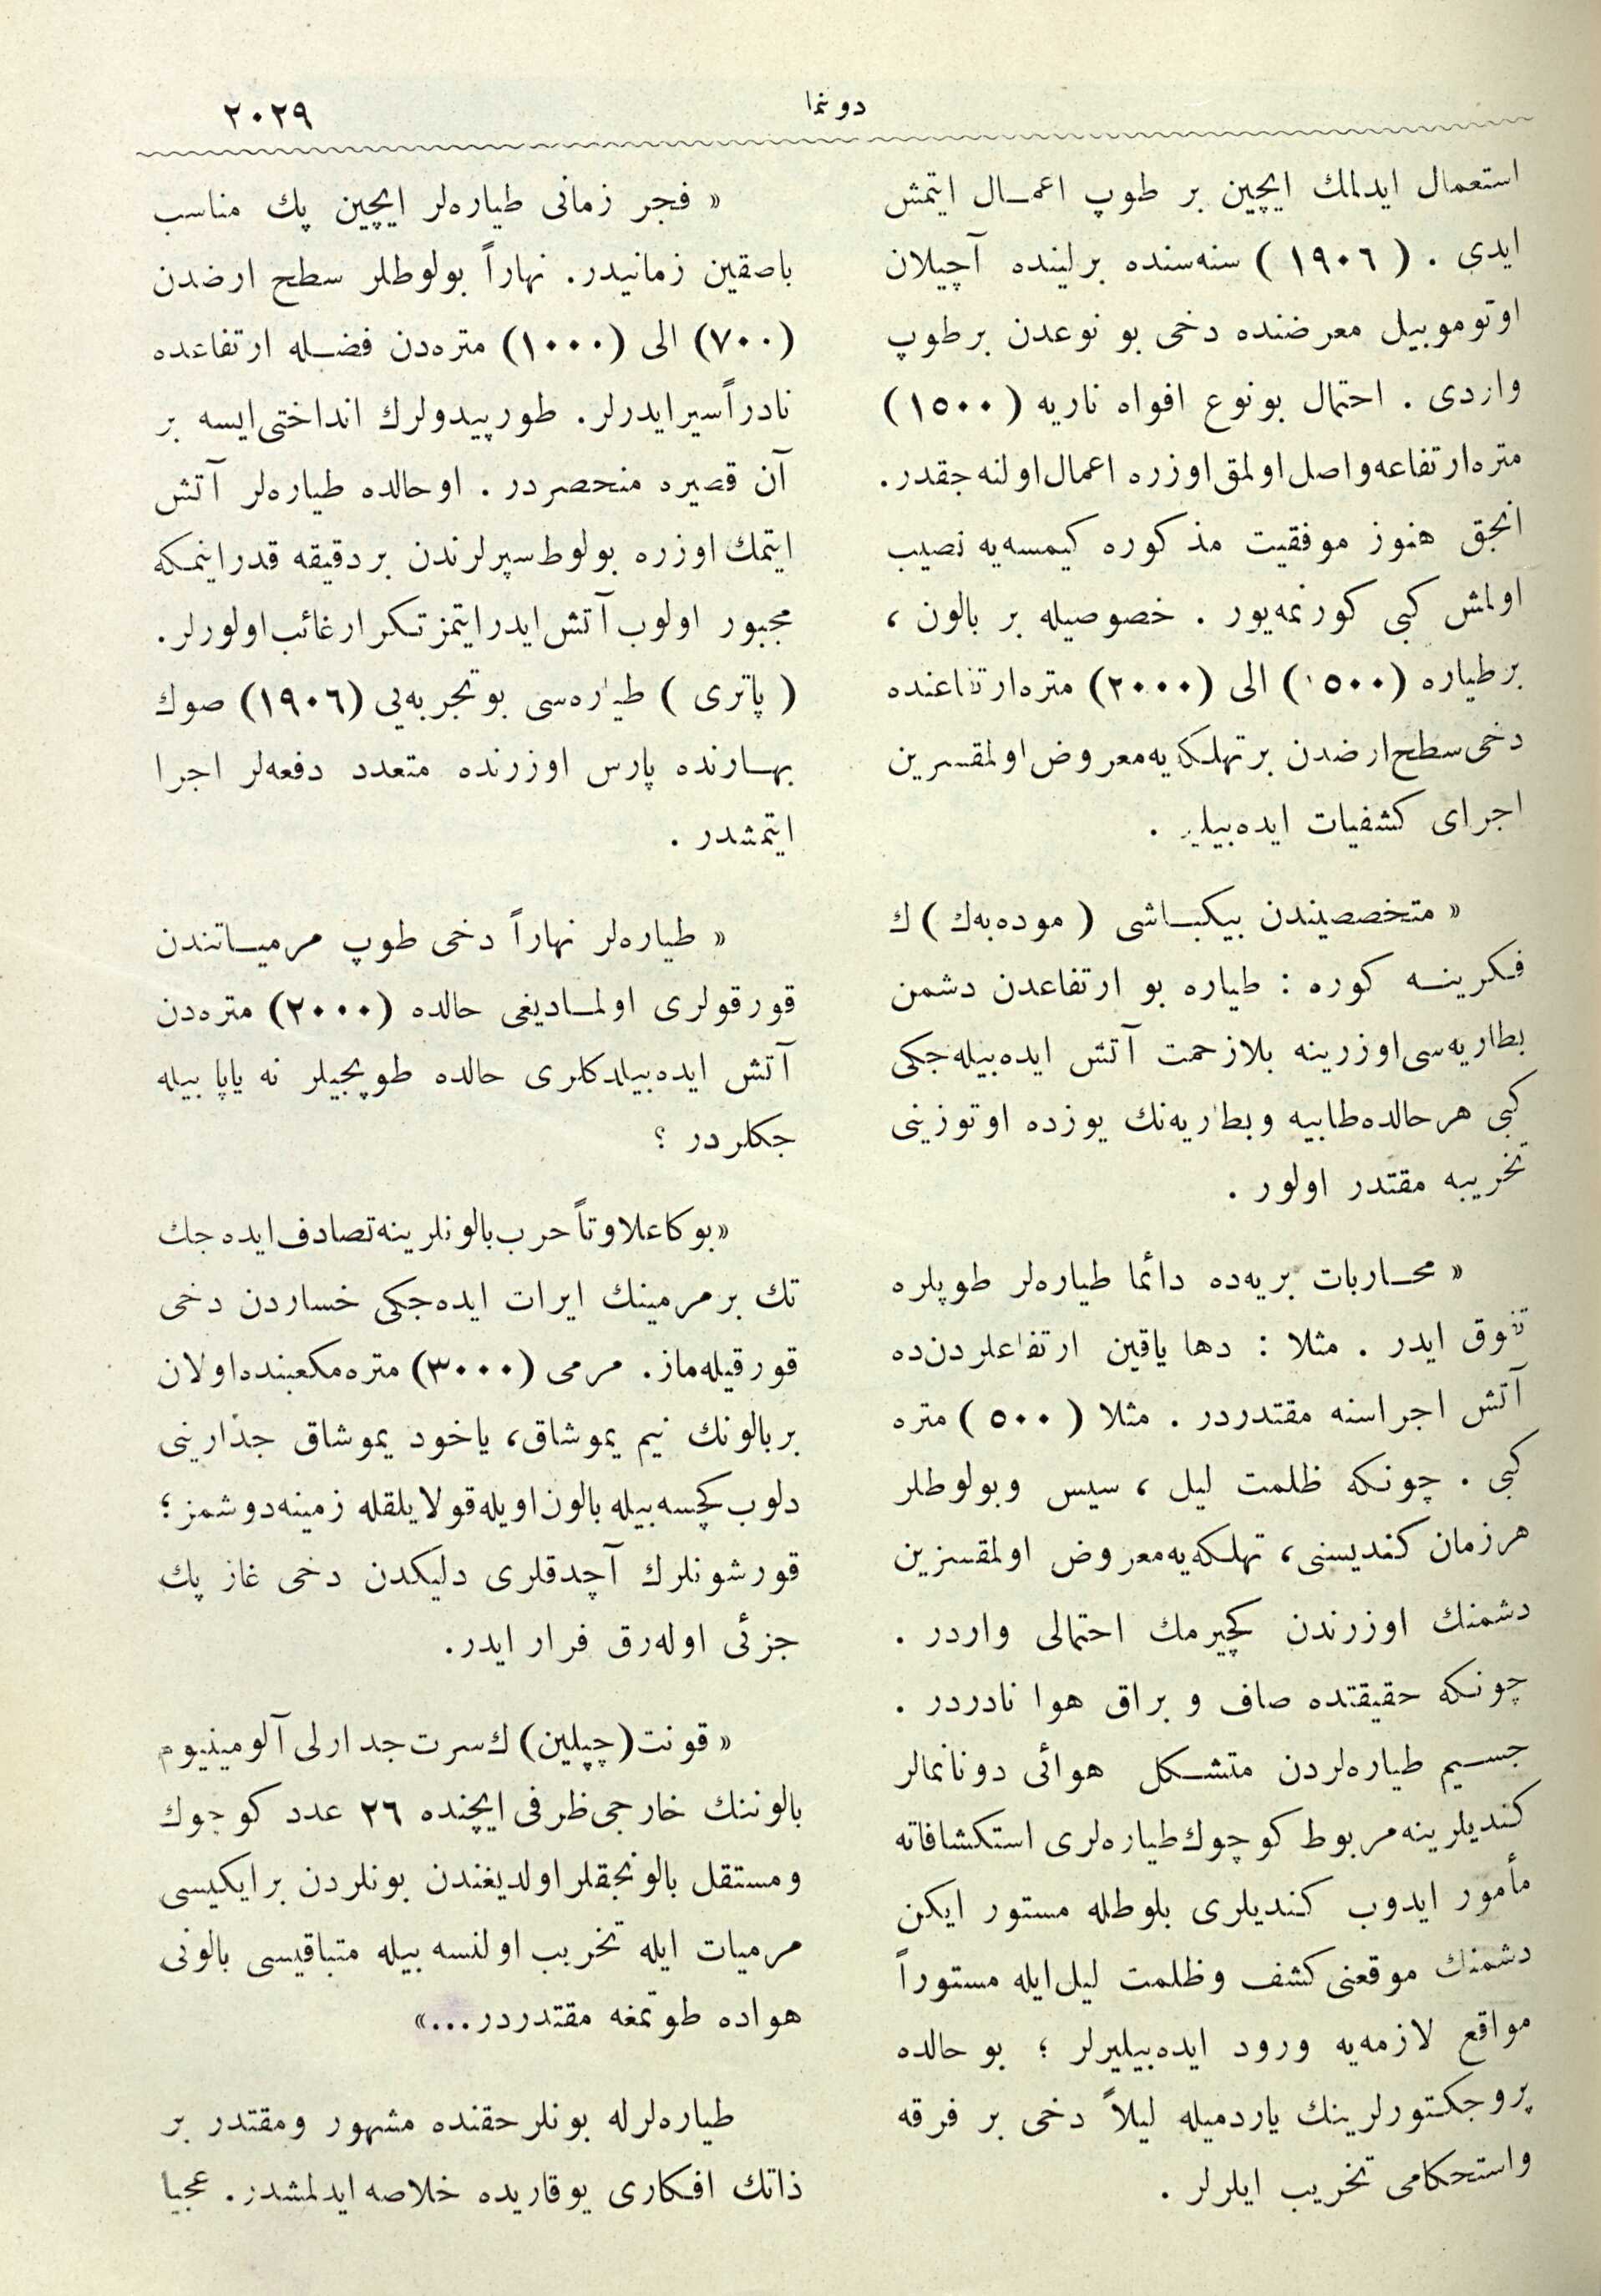 دوننما
٢٠٢٩
استعمال ایدلمك ایچین بر طوپ اعمال ایتمش
ایدی . (١٩٠٦) سنه‌سنده برلینده آچیلان
اوتوموبیل معرضنده دخی بو نوعدن برطوپ
واردی . احتمال بونوع افواه ناریه (١٥٠٠)
متره‌ارتفاعه‌واصل‌اولمق‌اوزره اعمال‌اولنه‌جقدر.
انجق هنوز موفقیت مذكوره كیمسه‌یه نصیب
اولمش كبی كورنمه‌یور . خصوصیله بر بالون ،
برطیاره (١٥٠٠) الی (٢٠٠٠) متره‌ارتفاعنده
دخی‌سطح‌ارضدن برتهلكه‌یه‌معروض‌اولمقسزین
اجرای كشفیات ایده‌بیلیر .
« متخصصیندن بیكباشی (موده‌به‌ك)ك
فكرینه كوره : طیاره بو ارتفاعدن دشمن
بطاریه‌سی‌اوزرینه بلازحمت آتش ایده‌بیله‌جكی
كبی هرحالده‌طابیه وبطاریه‌نك یوزده اوتوزینی
تخریبه مقتدر اولور .
« محاربات بریه‌ده دائما طیاره‌لر طوپلره
تفوق ایدر . مثلا : دها یاقین ارتفاعلردن‌ده
آتش اجراسنه مقتدردر . مثلا (٥٠٠) متره
كبی . چونكه ظلمت لیل ، سیس وبولوطلر
هرزمان كندیسنی، تهلكه‌یه‌معروض اولمقسزین
دشمنك اوزرندن كچیرمك احتمالی واردر .
چونكه حقیقتده صاف و براق هوا نادردر .
جسیم طیاره‌لردن متشكل هوائی دونانمالر
كندیلرینه‌مربوط كوچوك‌طیاره‌لری استكشافاته
مأمور ایدوب كندیلری بلوطله مستور ایكن
دشمنك موقعنی‌كشف وظلمت لیل‌ایله مستوراً
مواقع لازمه‌یه ورود ایده‌بیلیرلر ؛ بو حالده
پروجكتورلرینك یاردمیله لیلاً دخی بر فرقه
واستحكامی تخریب ایلرلر .
« فجر زمانی طیاره‌لر ایچین پك مناسب
باصقین زمانیدر. نهاراً بولوطلر سطح ارضدن
(٧٠٠) الی (١٠٠٠) متره‌دن فضله ارتفاعده
نادراًسیرایدرلر. طورپیدولرك انداختی‌ایسه بر
آن قصیره منحصردر . اوحالده طیاره‌لر آتش
ایتمك‌اوزره بولوط‌سپرلرندن بردقیقه قدراینمكه
مجبور اولوب‌آتش‌ایدرایتمزتكرارغائب‌اولورلر.
(پاتری) طیاره‌سی بوتجربه‌یی (١٩٠٦) صوك
بهارنده پارس اوزرنده متعدد دفعه‌لر اجرا
ایتمشدر .
« طیاره‌لر نهاراً دخی طوپ مرمیاتندن
قورقولری اولمادیغی حالده (٢٠٠٠) متره‌دن
آتش ایده‌بیلدكلری حالده طوپجیلر نه یاپا بیله
جكلردر ؟
«بوكاعلاوتاً حرب‌بالونلرینه‌تصادف‌ایده‌جك
تك برمرمینك ایرات ایده‌جكی خساردن دخی
قورقیله‌ماز. مرمی (٣٠٠٠) متره‌مكعبنده‌اولان
بربالونك نیم یموشاق، یاخود یموشاق جدارینی
دلوب‌كچسه‌بیله‌بالون‌اویله‌قولایلقله زمینه‌دوشمز؛
قورشونلرك آچدقلری دلیكدن دخی غاز پك
جزئی اوله‌رق فرار ایدر.
« قونت(چپلین)ك‌سرت‌جدارلی‌آلومینیوم
بالوننك خارجی‌ظرفی‌ایچنده ٢٦ عدد كوچوك
ومستقل بالونجقلراولدیغندن بونلردن برایكیسی
مرمیات ایله تخریب اولنسه بیله متباقیسی بالونی
هواده طوتمغه مقتدردر...»
طیاره‌لرله بونلرحقنده مشهور ومقتدر بر
ذاتك افكاری یوقاریده خلاصه ایدلمشدر. عجبا